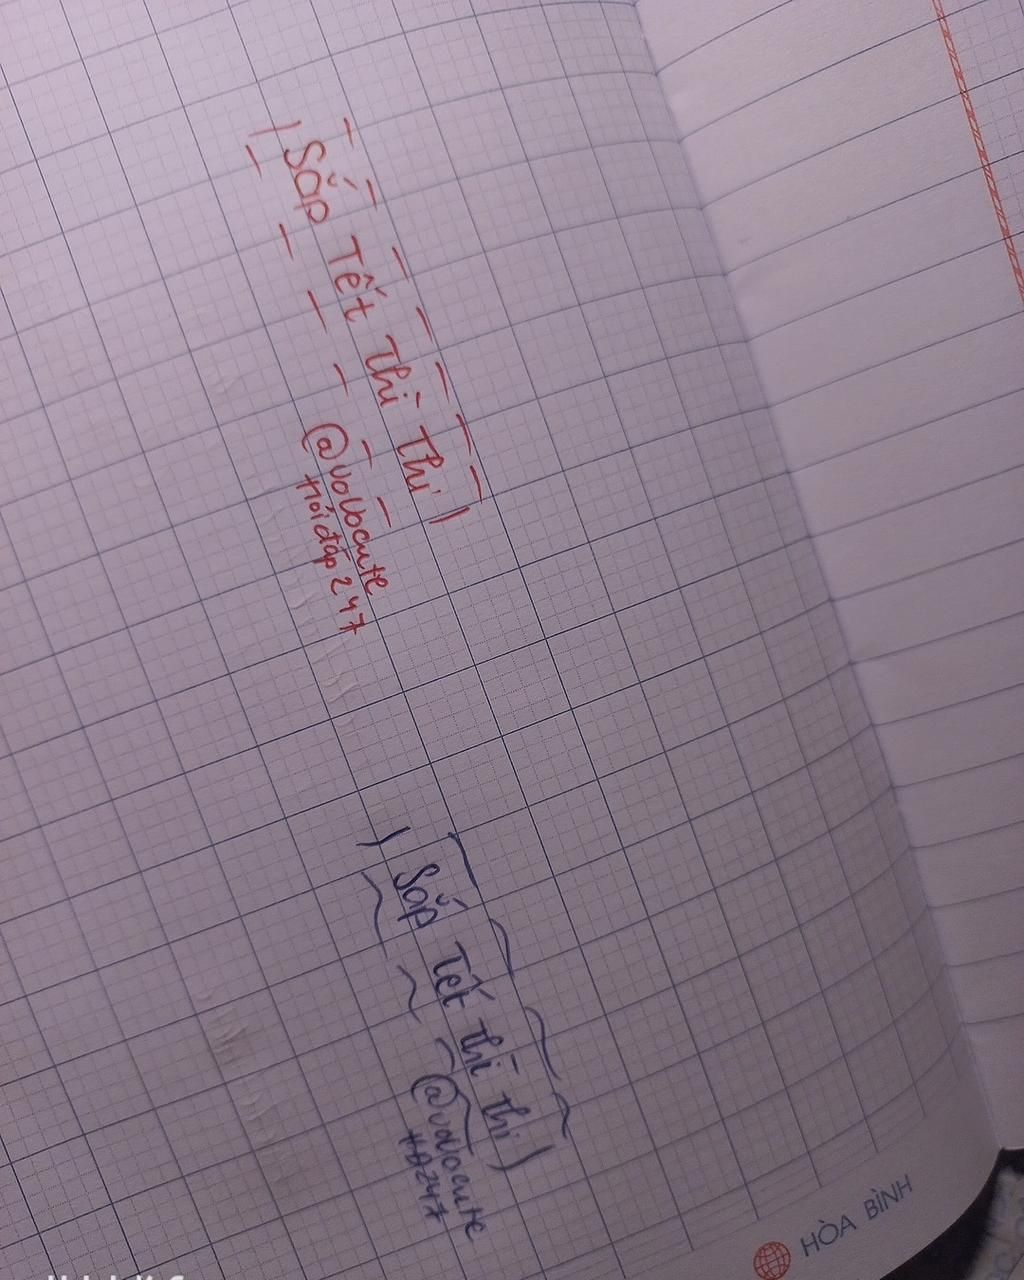 Sắp Tết thì thi
@volbocute
Hỏi đáp 247
Sắp Tết thì thi
@volvocute
HĐ247
HÒA BÌNH